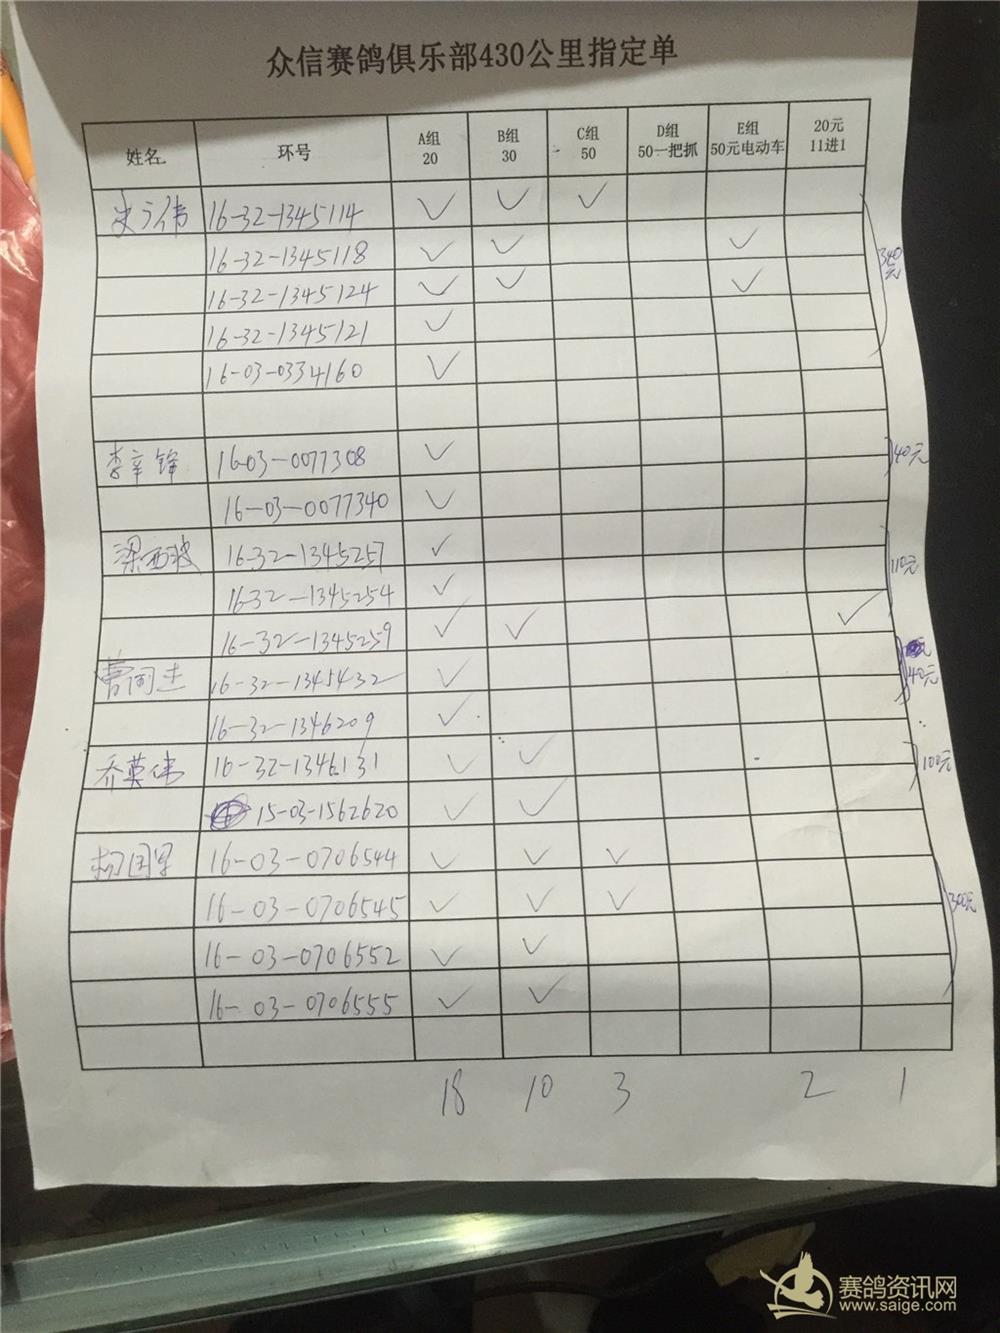 众信赛鸽俱乐部430公里指定单
姓名 环号 A组 20 B组 30 C组 50 D组 50一把抓 E组 50元电动车 20元 11进1
史方伟 16-32-1345114 ✓ ✓ ✓
16-32-1345118 ✓ ✓ ✓
340元
16-32-1345124 ✓ ✓ ✓
16-32-1345121 ✓
16-03-0334160 ✓
李辛锋 16-03-0077308 ✓ 40元
16-03-0077340 ✓
梁西波 16-32-1345257 ✓ 110元
16-32-1345254 ✓
16-32-1345259 ✓ ✓ ✓
曹同杰 16-32-1345432 ✓ 40元
16-32-1346209 ✓
乔英伟 16-32-1346131 ✓ ✓ 100元
15-03-1562620 ✓ ✓
杨国军 16-03-0706544 ✓ ✓ ✓
16-03-0706545 ✓ ✓ ✓ 300元
16-03-0706552 ✓ ✓
16-03-0706555 ✓ ✓
18 10 3 2 1
赛鸽资讯网
www.saige.com